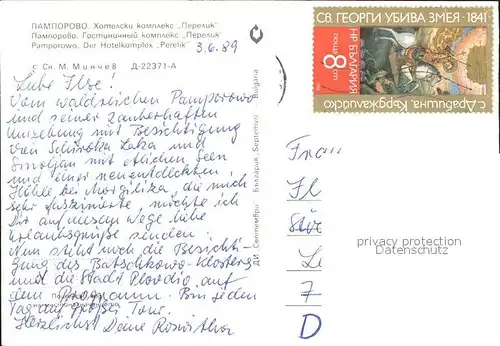 ПАМПОРОВО. Хотелски комплекс „Перелик"
Пампорово. Гостиничный комплекс „Перелик"
Pamporowo. Der Hotelkomplex „Perelik"
3.6.89
с Сн. М. Минчев Д-22371-А
Liebe Ilse!
Vom waldreichen Pamporowo
und seiner zauberhaften
Umgebung mit Besichtigung
von Schiroka Laka und
Smoljan mit etlichen Seen
und einer neuentdeckten
Höhle bei Mogiliza, die mich
sehr faszinierte, möchte ich
Dir auf diesem Wege liebe
Urlaubsgrüße senden.
Nun steht noch die Besichti-
gung des Batschkowo-Klosters
und die Stadt Plovdiv auf
dem Programm. Bin jeden
Tag auf großer Tour.
Herzlichst Deine Roswitha
ДИ „Септември" България „Septemvri" Bulgaria
СВ. ГЕОРГИ УБИВА ЗМЕЯ · 1841
НР БЪЛГАРИЯ
поща 8 ст
с. Драбишна, Кърджалийско
Frau
Il
Le
7
D
privacy protection
Datenschutz